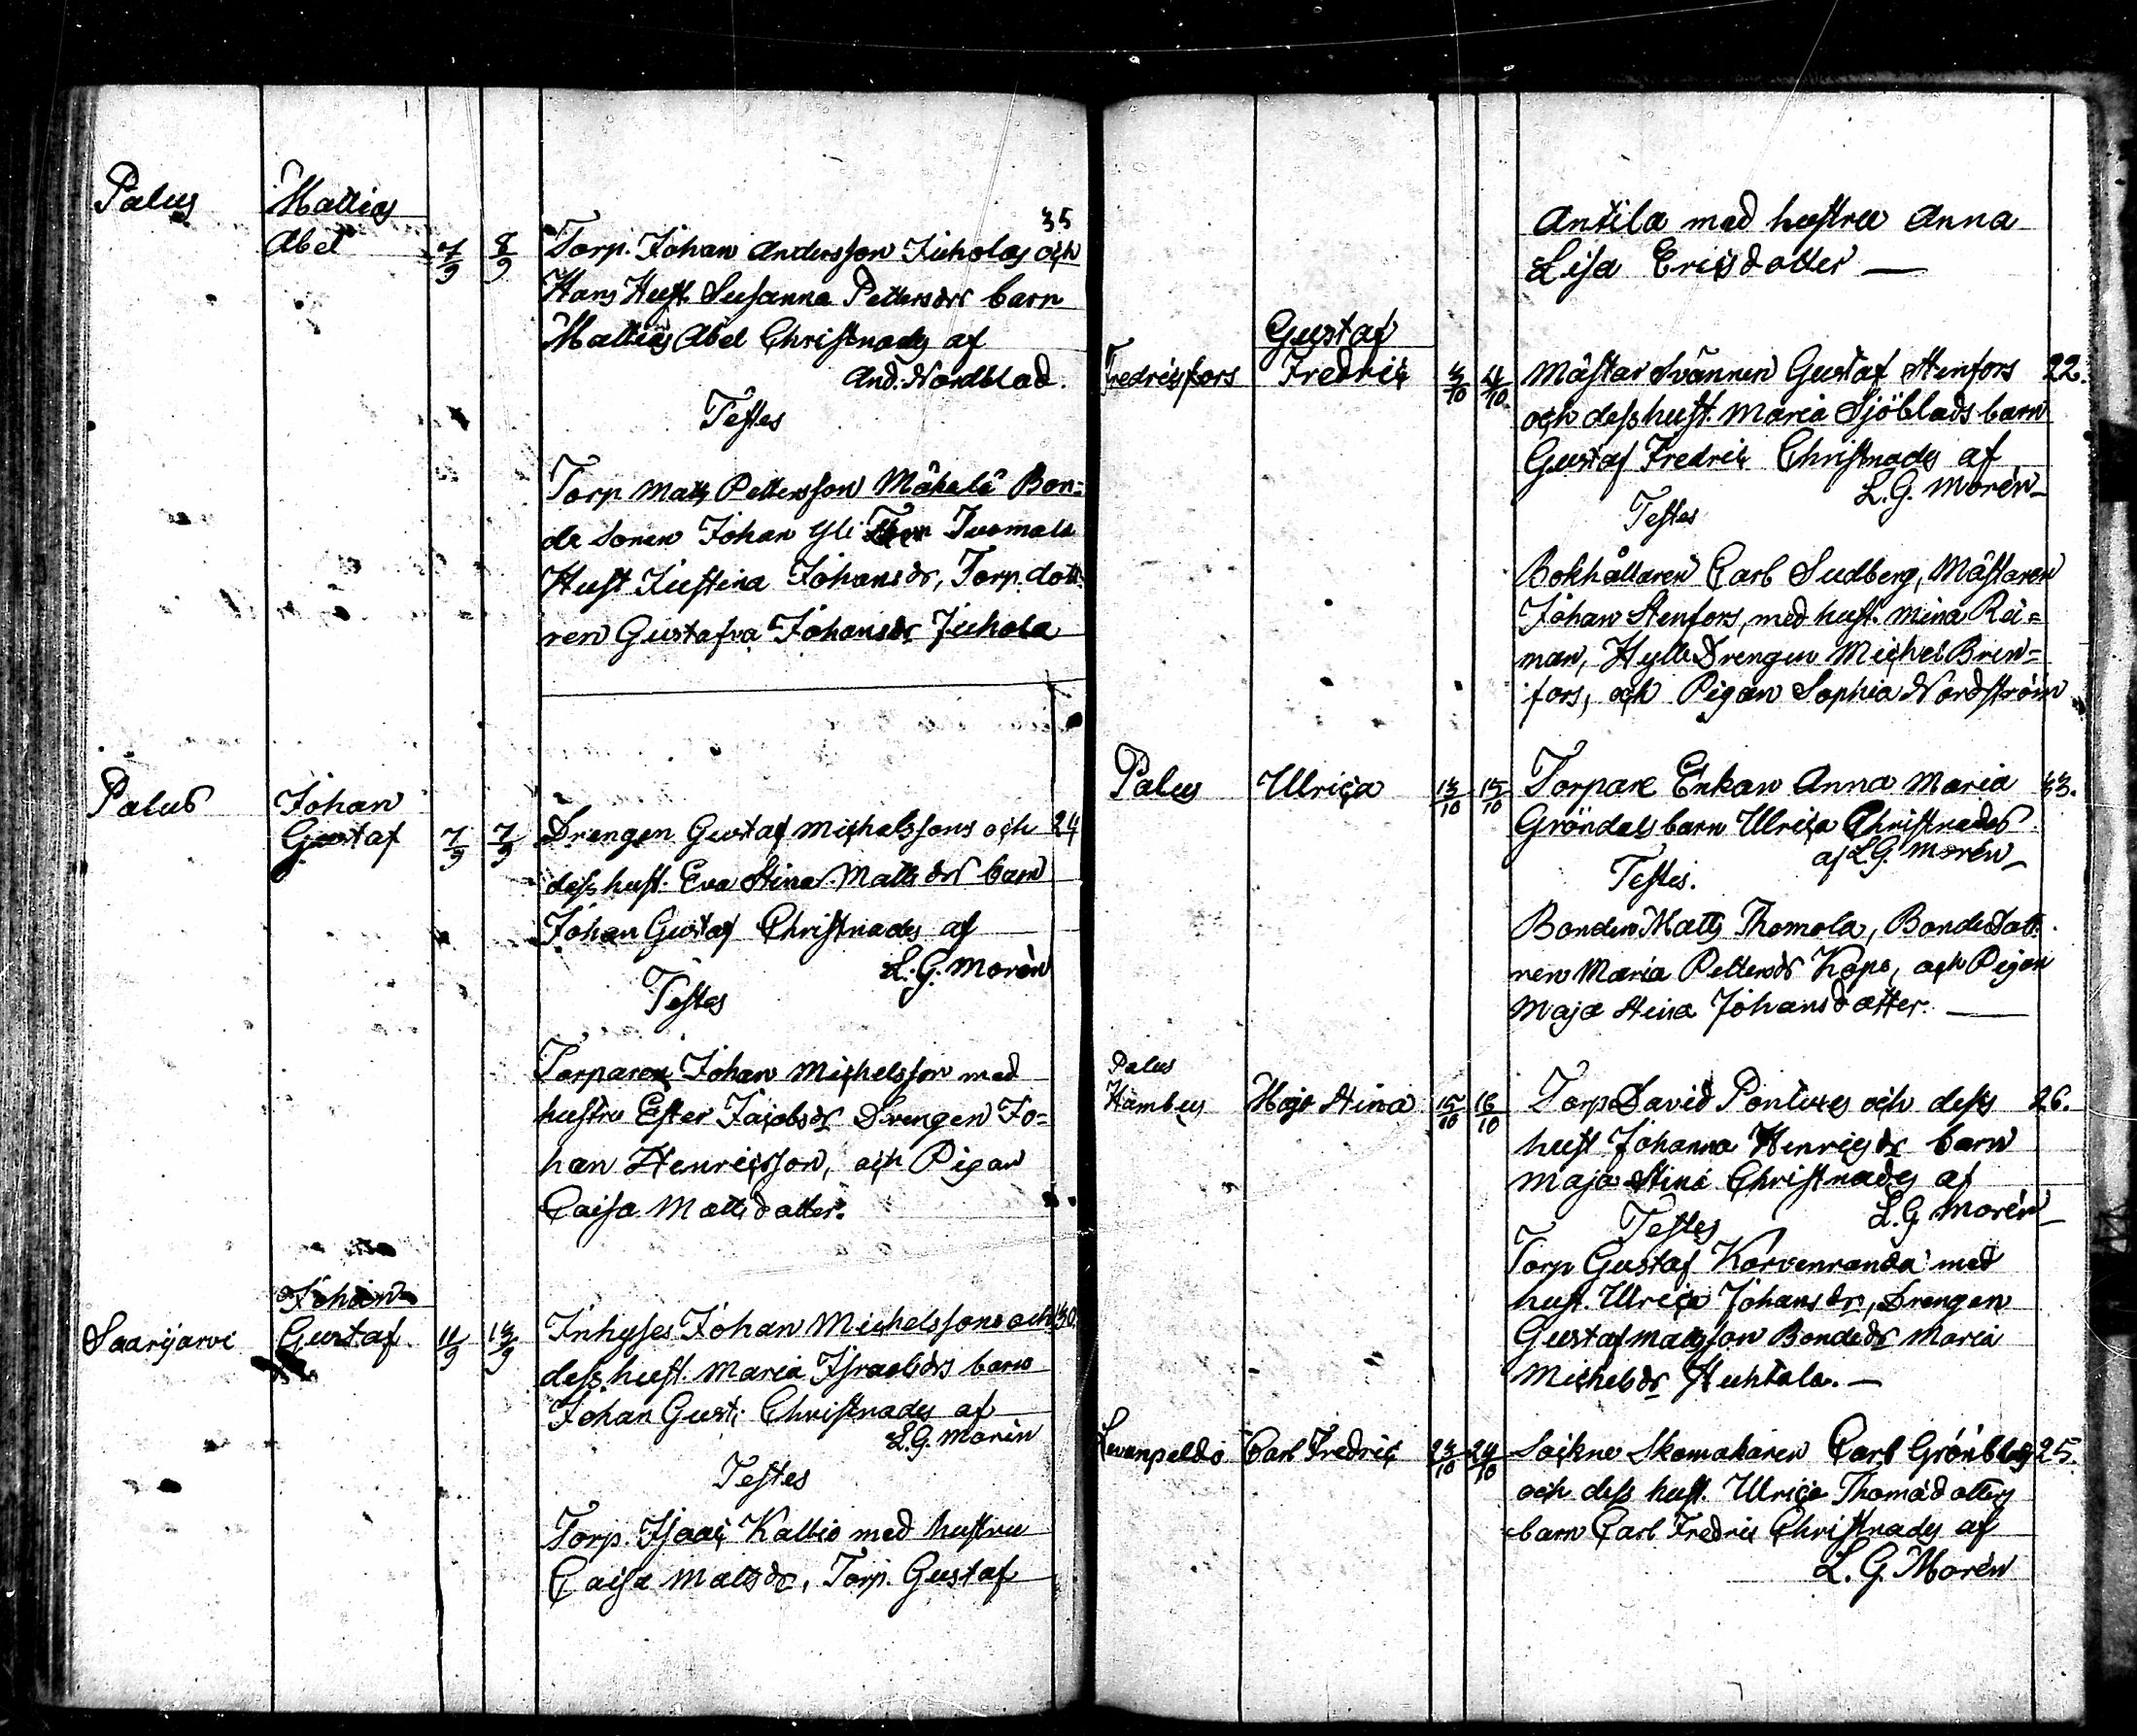 Palus Mattias
35
Abel 7/9 8/9 Torp. Johan Andersson Juholas och
Hans Hust. Susanna Pettersdrs barn
Mattias Abel Christnades af
And. Nordblad.
Testes
Torp Matts Pettersson Mäkelä Bon=
de Sonen Johan Yli Tuomala
Hust Justina Johansdr, Torp. dott
ren Gustafva Johansdr Juhola
Palus Johan
Gustaf 7/9 7/9 Drengen Gustaf Michelssons och 24
dess hust. Eva Stina Mattsdrs barn
Johan Gustaf Christnades af
L. G. Morén
Testes
Torparen Johan Michelsson med
hustru Ester Jacobsdr Drengen Jo=
han Henricsson, och Pigan
Caisa Mattsdotter.
Johan
Saarijarvi Gustaf 11/9 13/9 Inhyses Johan Michelssons och 30.
dess hust. Maria Israelsdrs barn
Johan Gust: Christnades af
L. G. Morén
Testes
Torp. Isaac Kallio med hustru
Caisa Mattsdr, Torp. Gustaf
Antila med hustru Anna
Lisa Ericsdotter —
Gustaf
Fredricsfors Fredric 3/10 4/10 Mästar Svännen Gustaf Stenfors 22.
och dess hust. Maria Sjöblads barn
Gustaf Fredric Christnades af
L. G. Morén
Testes
Bokhållaren Carl Sudberg, Mästaren
Johan Stenfors, med hust. Mina Rei=
man, Hytte Drengen Michel Bren=
fors, och Pigan Sophia Nordström
Palus Ulrica 13/10 15/10 Torpare Enkan Anna Maria 33.
Gröndals barn Ulrica Christnades
af L. G. Morén
Testes.
Bonden Matts Thomola, Bondedott
ren Maria Pettersdr Kopo, och Pigan
Maja Stina Johansdotter. —
Palus
Hambus Maja Stina 15/10 16/10 Torp David Pontus och dess 26.
hust Johanna Henricsdrs barn
Maja Stina Christnades af
L. G. Morén
Testes
Torp Gustaf Korvenranda med
hust. Ulrica Johansdr, Drengen
Gustaf Matsson Bondedr Maria
Michelsdr Huhtala. —
Levanpeldo Carl Fredric 23/10 24/10 Sockne Skomakaren Carl Grönblads 25.
och dess hust. Ulrica Thomædotters
barn Carl Fredric Christnades af
L. G. Morén